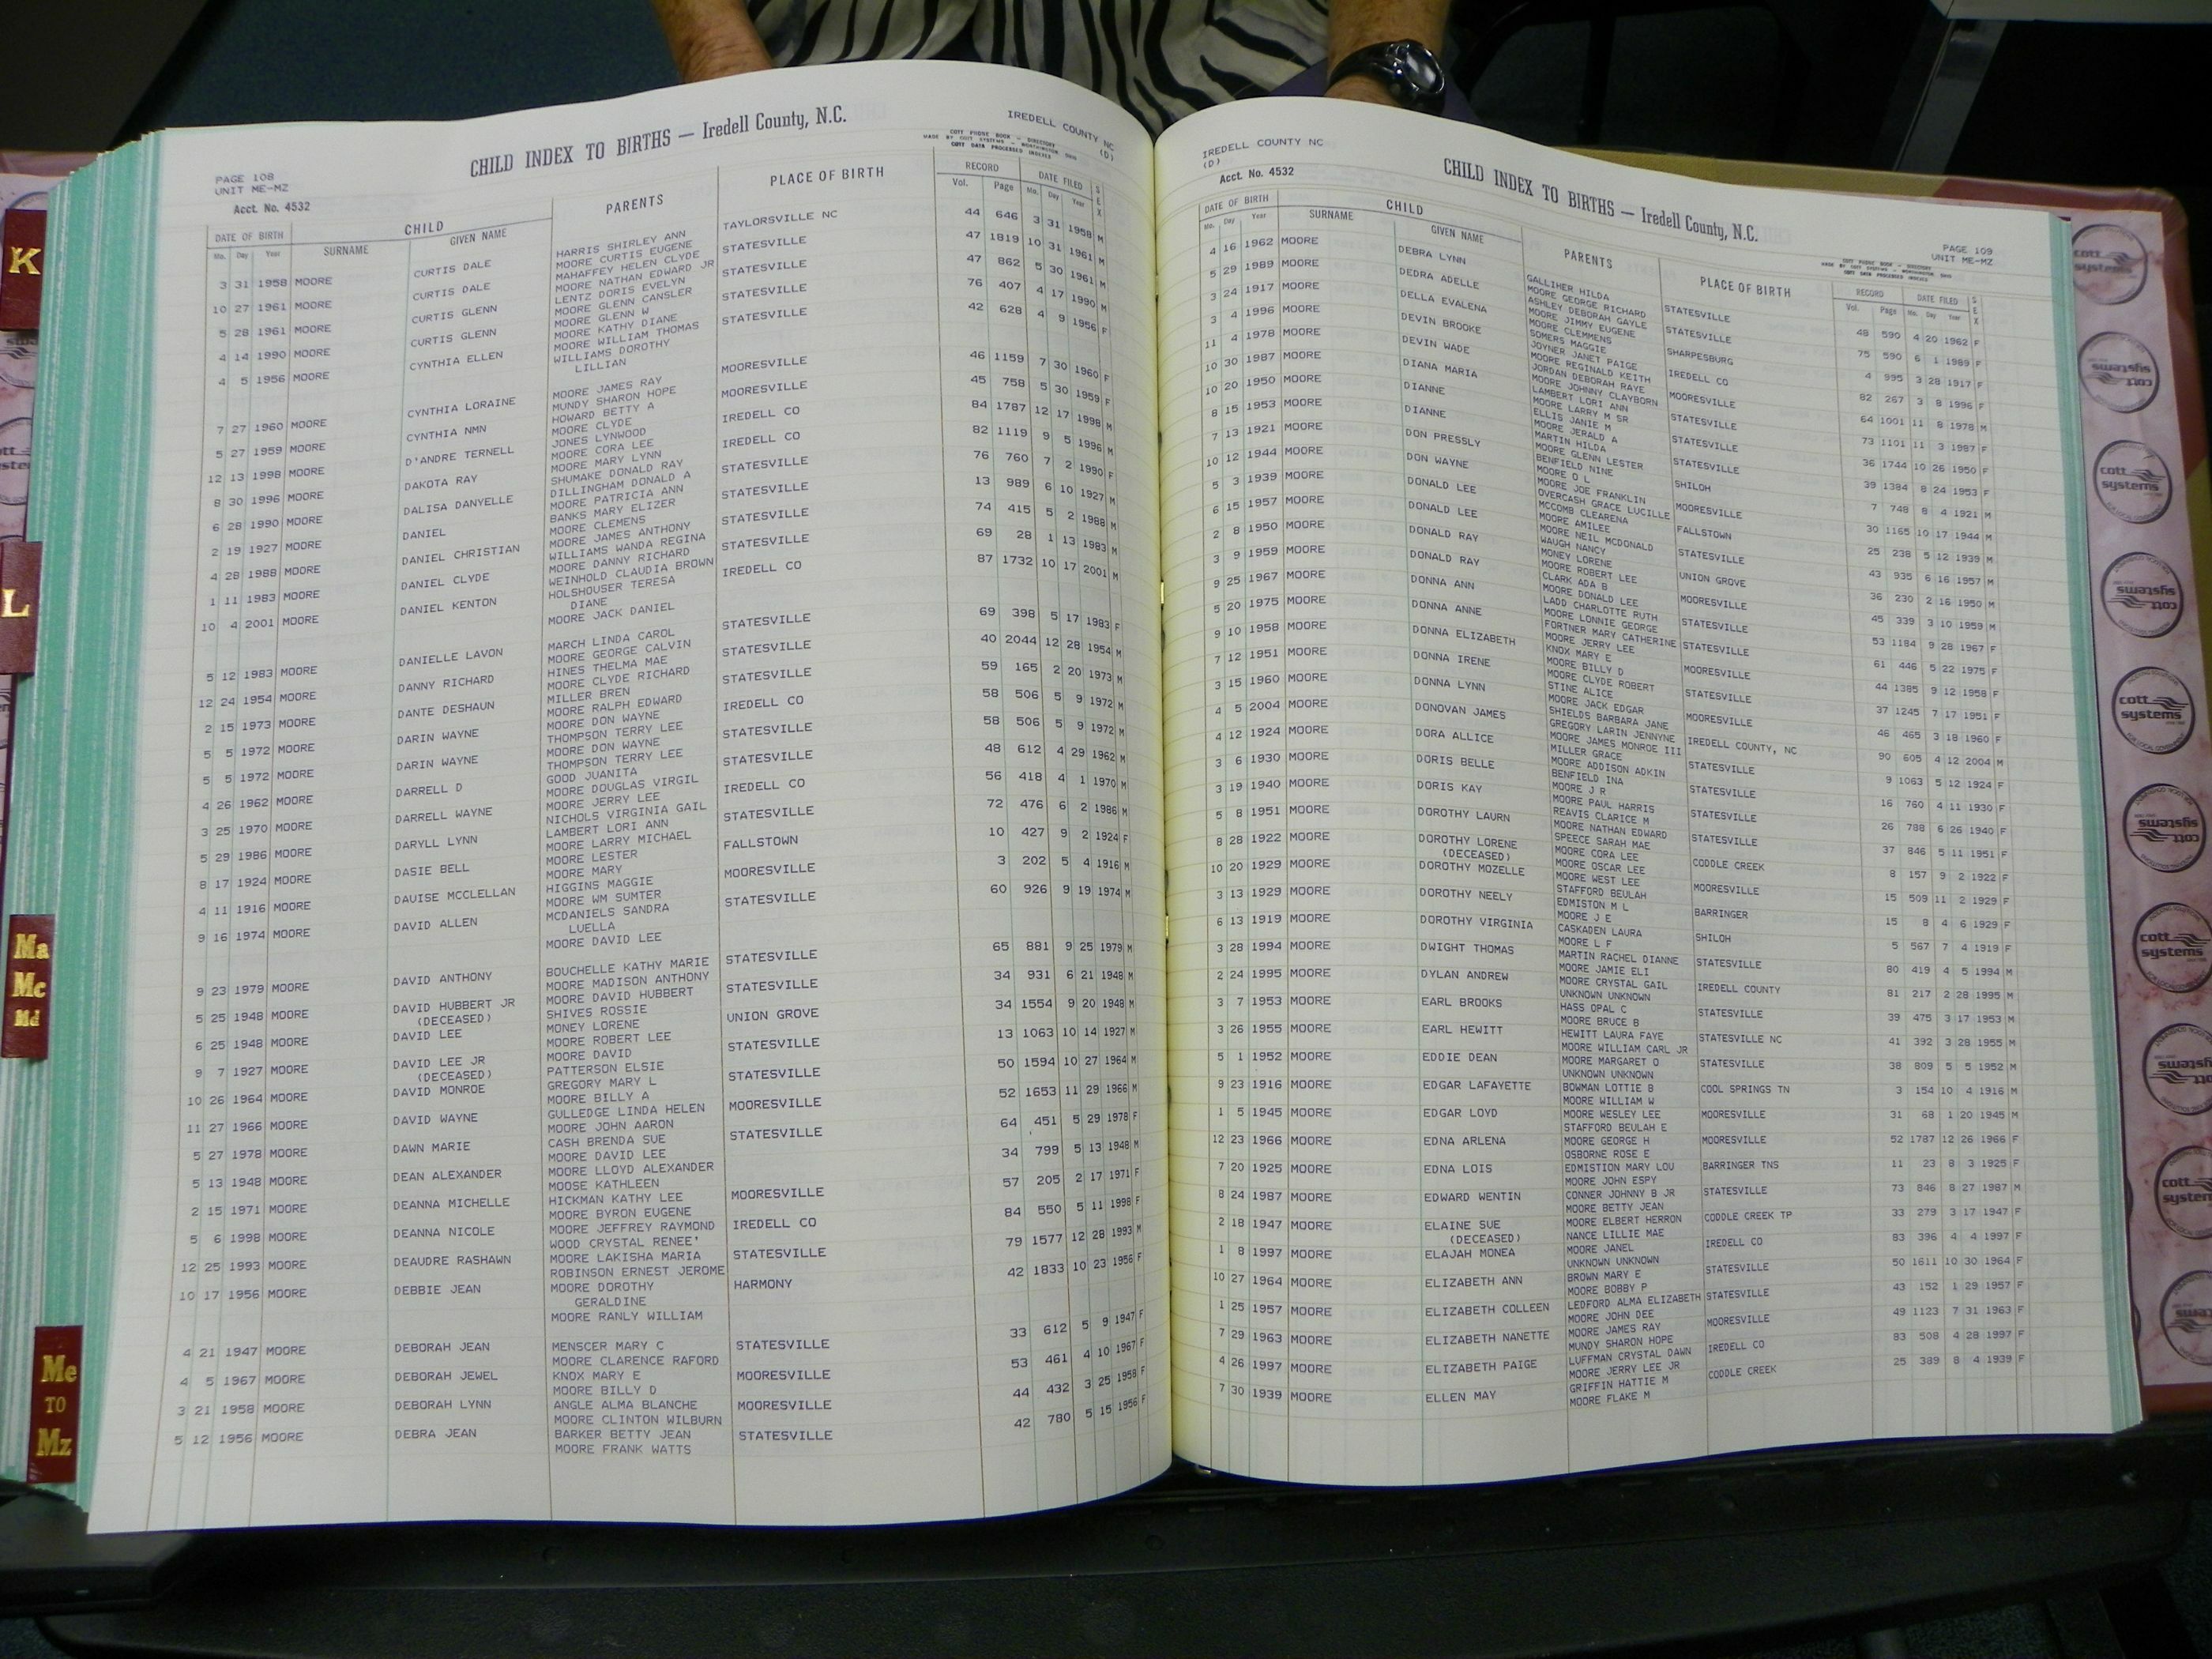 CHILD INDEX TO BIRTHS — Iredell County, N.C.
IREDELL COUNTY NC
(D)
PAGE 108
UNIT ME-MZ
Acct. No. 4532
COTT PHONE BOOK - DIRECTORY
MADE BY COTT SYSTEMS - WORTHINGTON, OHIO
COTT DATA PROCESSED INDEXES
DATE OF BIRTH CHILD PARENTS PLACE OF BIRTH RECORD DATE FILED SEX
Mo. Day Year SURNAME GIVEN NAME Vol. Page Mo. Day Year
3 31 1958 MOORE CURTIS DALE HARRIS SHIRLEY ANN TAYLORSVILLE NC 44 646 3 31 1958 M
MOORE CURTIS EUGENE
10 27 1961 MOORE CURTIS DALE MAHAFFEY HELEN CLYDE STATESVILLE 47 1819 10 31 1961 M
MOORE NATHAN EDWARD JR
5 28 1961 MOORE CURTIS GLENN LENTZ DORIS EVELYN STATESVILLE 47 862 5 30 1961 M
MOORE GLENN CANSLER
4 14 1990 MOORE CURTIS GLENN MOORE GLENN W STATESVILLE 76 407 4 17 1990 M
MOORE KATHY DIANE
4 5 1956 MOORE CYNTHIA ELLEN MOORE WILLIAM THOMAS STATESVILLE 42 628 4 9 1956 F
WILLIAMS DOROTHY
LILLIAN
7 27 1960 MOORE CYNTHIA LORAINE MOORE JAMES RAY MOORESVILLE 46 1159 7 30 1960 F
MUNDY SHARON HOPE
5 27 1959 MOORE CYNTHIA NMN HOWARD BETTY A MOORESVILLE 45 758 5 30 1959 F
MOORE CLYDE
12 13 1998 MOORE D'ANDRE TERNELL JONES LYNWOOD IREDELL CO 84 1787 12 17 1998 M
MOORE CORA LEE
8 30 1996 MOORE DAKOTA RAY MOORE MARY LYNN IREDELL CO 82 1119 9 5 1996 M
SHUMAKE DONALD RAY
6 28 1990 MOORE DALISA DANYELLE DILLINGHAM DONALD A STATESVILLE 76 760 7 2 1990 F
MOORE PATRICIA ANN
2 19 1927 MOORE DANIEL BANKS MARY ELIZER STATESVILLE 13 989 6 10 1927 M
MOORE CLEMENS
4 28 1988 MOORE DANIEL CHRISTIAN MOORE JAMES ANTHONY STATESVILLE 74 415 5 2 1988 M
WILLIAMS WANDA REGINA
1 11 1983 MOORE DANIEL CLYDE MOORE DANNY RICHARD STATESVILLE 69 28 1 13 1983 M
WEINHOLD CLAUDIA BROWN
10 4 2001 MOORE DANIEL KENTON HOLSHOUSER TERESA IREDELL CO 87 1732 10 17 2001 M
DIANE
MOORE JACK DANIEL
5 12 1983 MOORE DANIELLE LAVON MARCH LINDA CAROL STATESVILLE 69 398 5 17 1983 F
MOORE GEORGE CALVIN
12 24 1954 MOORE DANNY RICHARD HINES THELMA MAE STATESVILLE 40 2044 12 28 1954 M
MOORE CLYDE RICHARD
2 15 1973 MOORE DANTE DESHAUN MILLER BREN STATESVILLE 59 165 2 20 1973 M
MOORE RALPH EDWARD
5 5 1972 MOORE DARIN WAYNE MOORE DON WAYNE IREDELL CO 58 506 5 9 1972 M
THOMPSON TERRY LEE
5 5 1972 MOORE DARIN WAYNE MOORE DON WAYNE STATESVILLE 58 506 5 9 1972 M
THOMPSON TERRY LEE
4 26 1962 MOORE DARRELL D GOOD JUANITA STATESVILLE 48 612 4 29 1962 M
MOORE DOUGLAS VIRGIL
3 25 1970 MOORE DARRELL WAYNE MOORE JERRY LEE IREDELL CO 56 418 4 1 1970 M
NICHOLS VIRGINIA GAIL
5 29 1986 MOORE DARYLL LYNN LAMBERT LORI ANN STATESVILLE 72 476 6 2 1986 M
MOORE LARRY MICHAEL
8 17 1924 MOORE DASIE BELL MOORE LESTER FALLSTOWN 10 427 9 2 1924 F
MOORE MARY
4 11 1916 MOORE DAUISE MCCLELLAN HIGGINS MAGGIE MOORESVILLE 3 202 5 4 1916 M
MOORE WM SUMTER
9 16 1974 MOORE DAVID ALLEN MCDANIELS SANDRA STATESVILLE 60 926 9 19 1974 M
LUELLA
MOORE DAVID LEE
9 23 1979 MOORE DAVID ANTHONY BOUCHELLE KATHY MARIE STATESVILLE 65 881 9 25 1979 M
MOORE MADISON ANTHONY
5 25 1948 MOORE DAVID HUBBERT JR MOORE DAVID HUBBERT STATESVILLE 34 931 6 21 1948 M
(DECEASED) SHIVES ROSSIE
6 25 1948 MOORE DAVID LEE MONEY LORENE UNION GROVE 34 1554 9 20 1948 M
MOORE ROBERT LEE
9 7 1927 MOORE DAVID LEE JR MOORE DAVID STATESVILLE 13 1063 10 14 1927 M
(DECEASED) PATTERSON ELSIE
10 26 1964 MOORE DAVID MONROE GREGORY MARY L STATESVILLE 50 1594 10 27 1964 M
MOORE BILLY A
11 27 1966 MOORE DAVID WAYNE GULLEDGE LINDA HELEN MOORESVILLE 52 1653 11 29 1966 M
MOORE JOHN AARON
5 27 1978 MOORE DAWN MARIE CASH BRENDA SUE STATESVILLE 64 451 5 29 1978 F
MOORE DAVID LEE
5 13 1948 MOORE DEAN ALEXANDER MOORE LLOYD ALEXANDER 34 799 5 13 1948 M
MOOSE KATHLEEN
2 15 1971 MOORE DEANNA MICHELLE HICKMAN KATHY LEE MOORESVILLE 57 205 2 17 1971 F
MOORE BYRON EUGENE
5 6 1998 MOORE DEANNA NICOLE MOORE JEFFREY RAYMOND IREDELL CO 84 550 5 11 1998 F
WOOD CRYSTAL RENEE'
12 25 1993 MOORE DEAUDRE RASHAWN MOORE LAKISHA MARIA STATESVILLE 79 1577 12 28 1993 M
ROBINSON ERNEST JEROME
10 17 1956 MOORE DEBBIE JEAN MOORE DOROTHY HARMONY 42 1833 10 23 1956 F
GERALDINE
MOORE RANLY WILLIAM
4 21 1947 MOORE DEBORAH JEAN MENSCER MARY C STATESVILLE 33 612 5 9 1947 F
MOORE CLARENCE RAFORD
4 5 1967 MOORE DEBORAH JEWEL KNOX MARY E MOORESVILLE 53 461 4 10 1967 F
MOORE BILLY D
3 21 1958 MOORE DEBORAH LYNN ANGLE ALMA BLANCHE MOORESVILLE 44 432 3 25 1958 F
MOORE CLINTON WILBURN
5 12 1956 MOORE DEBRA JEAN BARKER BETTY JEAN STATESVILLE 42 780 5 15 1956 F
MOORE FRANK WATTS
IREDELL COUNTY NC
(D)
Acct. No. 4532
CHILD INDEX TO BIRTHS — Iredell County, N.C.
PAGE 109
UNIT ME-MZ
COTT PHONE BOOK - DIRECTORY
MADE BY COTT SYSTEMS - WORTHINGTON, OHIO
COTT DATA PROCESSED INDEXES
DATE OF BIRTH CHILD PARENTS PLACE OF BIRTH RECORD DATE FILED SEX
Mo. Day Year SURNAME GIVEN NAME Vol. Page Mo. Day Year
4 16 1962 MOORE DEBRA LYNN GALLIHER HILDA STATESVILLE 48 590 4 20 1962 F
MOORE GEORGE RICHARD
5 29 1989 MOORE DEDRA ADELLE ASHLEY DEBORAH GAYLE STATESVILLE 75 590 6 1 1989 F
MOORE JIMMY EUGENE
3 24 1917 MOORE DELLA EVALENA MOORE CLEMMENS SHARPESBURG 4 995 3 28 1917 F
SOMERS MAGGIE
3 4 1996 MOORE DEVIN BROOKE JOYNER JANET PAIGE IREDELL CO 82 267 3 8 1996 F
MOORE REGINALD KEITH
11 4 1978 MOORE DEVIN WADE JORDAN DEBORAH RAYE MOORESVILLE 64 1001 11 8 1978 M
MOORE JOHNNY CLAYBORN
10 30 1987 MOORE DIANA MARIA LAMBERT LORI ANN STATESVILLE 73 1101 11 3 1987 F
MOORE LARRY M SR
10 20 1950 MOORE DIANNE ELLIS JANIE M STATESVILLE 36 1744 10 26 1950 F
MOORE JERALD A
8 15 1953 MOORE DIANNE MARTIN HILDA STATESVILLE 39 1384 8 24 1953 F
MOORE GLENN LESTER
7 13 1921 MOORE DON PRESSLY BENFIELD NINE SHILOH 7 748 8 4 1921 M
MOORE O L
10 12 1944 MOORE DON WAYNE MOORE JOE FRANKLIN MOORESVILLE 30 1165 10 17 1944 M
OVERCASH GRACE LUCILLE
5 3 1939 MOORE DONALD LEE MCCOMB CLEARENA FALLSTOWN 25 238 5 12 1939 M
MOORE AMILEE
6 15 1957 MOORE DONALD LEE MOORE NEIL MCDONALD STATESVILLE 43 935 6 16 1957 M
WAUGH NANCY
2 8 1950 MOORE DONALD RAY MONEY LORENE UNION GROVE 36 230 2 16 1950 M
MOORE ROBERT LEE
3 9 1959 MOORE DONALD RAY CLARK ADA B MOORESVILLE 45 339 3 10 1959 M
MOORE DONALD LEE
9 25 1967 MOORE DONNA ANN LADD CHARLOTTE RUTH STATESVILLE 53 1184 9 28 1967 F
MOORE LONNIE GEORGE
5 20 1975 MOORE DONNA ANNE FORTNER MARY CATHERINE STATESVILLE 61 446 5 22 1975 F
MOORE JERRY LEE
9 10 1958 MOORE DONNA ELIZABETH KNOX MARY E MOORESVILLE 44 1385 9 12 1958 F
MOORE BILLY D
7 12 1951 MOORE DONNA IRENE MOORE CLYDE ROBERT STATESVILLE 37 1245 7 17 1951 F
STINE ALICE
3 15 1960 MOORE DONNA LYNN MOORE JACK EDGAR MOORESVILLE 46 465 3 18 1960 F
SHIELDS BARBARA JANE
4 5 2004 MOORE DONOVAN JAMES GREGORY LARIN JENNYNE IREDELL COUNTY, NC 90 605 4 12 2004 M
MOORE JAMES MONROE III
4 12 1924 MOORE DORA ALLICE MILLER GRACE STATESVILLE 9 1063 5 12 1924 F
MOORE ADDISON ADKIN
3 6 1930 MOORE DORIS BELLE BENFIELD INA STATESVILLE 16 760 4 11 1930 F
MOORE J R
3 19 1940 MOORE DORIS KAY MOORE PAUL HARRIS STATESVILLE 26 788 6 26 1940 F
REAVIS CLARICE M
5 8 1951 MOORE DOROTHY LAURN MOORE NATHAN EDWARD STATESVILLE 37 846 5 11 1951 F
SPEECE SARAH MAE
8 28 1922 MOORE DOROTHY LORENE MOORE CORA LEE CODDLE CREEK 8 157 9 2 1922 F
(DECEASED) MOORE OSCAR LEE
10 20 1929 MOORE DOROTHY MOZELLE MOORE WEST LEE MOORESVILLE 15 509 11 2 1929 F
STAFFORD BEULAH
3 13 1929 MOORE DOROTHY NEELY EDMISTON M L BARRINGER 15 8 4 6 1929 F
MOORE J E
6 13 1919 MOORE DOROTHY VIRGINIA CASKADEN LAURA SHILOH 5 567 7 4 1919 F
MOORE L F
3 28 1994 MOORE DWIGHT THOMAS MARTIN RACHEL DIANNE STATESVILLE 80 419 4 5 1994 M
MOORE JAMIE ELI
2 24 1995 MOORE DYLAN ANDREW MOORE CRYSTAL GAIL IREDELL COUNTY 81 217 2 28 1995 M
UNKNOWN UNKNOWN
3 7 1953 MOORE EARL BROOKS HASS OPAL C STATESVILLE 39 475 3 17 1953 M
MOORE BRUCE B
3 26 1955 MOORE EARL HEWITT HEWITT LAURA FAYE STATESVILLE NC 41 392 3 28 1955 M
MOORE WILLIAM CARL JR
5 1 1952 MOORE EDDIE DEAN MOORE MARGARET O STATESVILLE 38 809 5 5 1952 M
UNKNOWN UNKNOWN
9 23 1916 MOORE EDGAR LAFAYETTE BOWMAN LOTTIE B COOL SPRINGS TN 3 154 10 4 1916 M
MOORE WILLIAM W
1 5 1945 MOORE EDGAR LOYD MOORE WESLEY LEE MOORESVILLE 31 68 1 20 1945 M
STAFFORD BEULAH E
12 23 1966 MOORE EDNA ARLENA MOORE GEORGE H MOORESVILLE 52 1787 12 26 1966 F
OSBORNE ROSE E
7 20 1925 MOORE EDNA LOIS EDMISTION MARY LOU BARRINGER TNS 11 23 8 3 1925 F
MOORE JOHN ESPY
8 24 1987 MOORE EDWARD WENTIN CONNER JOHNNY B JR STATESVILLE 73 846 8 27 1987 M
MOORE BETTY JEAN
2 18 1947 MOORE ELAINE SUE MOORE ELBERT HERRON CODDLE CREEK TP 33 279 3 17 1947 F
(DECEASED) NANCE LILLIE MAE
1 8 1997 MOORE ELAJAH MONEA MOORE JANEL IREDELL CO 83 396 4 4 1997 F
UNKNOWN UNKNOWN
10 27 1964 MOORE ELIZABETH ANN BROWN MARY E STATESVILLE 50 1611 10 30 1964 F
MOORE BOBBY P
1 25 1957 MOORE ELIZABETH COLLEEN LEDFORD ALMA ELIZABETH STATESVILLE 43 152 1 29 1957 F
MOORE JOHN DEE
7 29 1963 MOORE ELIZABETH NANETTE MOORE JAMES RAY MOORESVILLE 49 1123 7 31 1963 F
MUNDY SHARON HOPE
4 26 1997 MOORE ELIZABETH PAIGE LUFFMAN CRYSTAL DAWN IREDELL CO 83 508 4 28 1997 F
MOORE JERRY LEE JR
7 30 1939 MOORE ELLEN MAY GRIFFIN HATTIE M CODDLE CREEK 25 389 8 4 1939 F
MOORE FLAKE M
K
L
Ma
Mc
Md
Me
TO
Mz
cott
systems
cott
systems
cott
systems
cott
systems
cott
systems